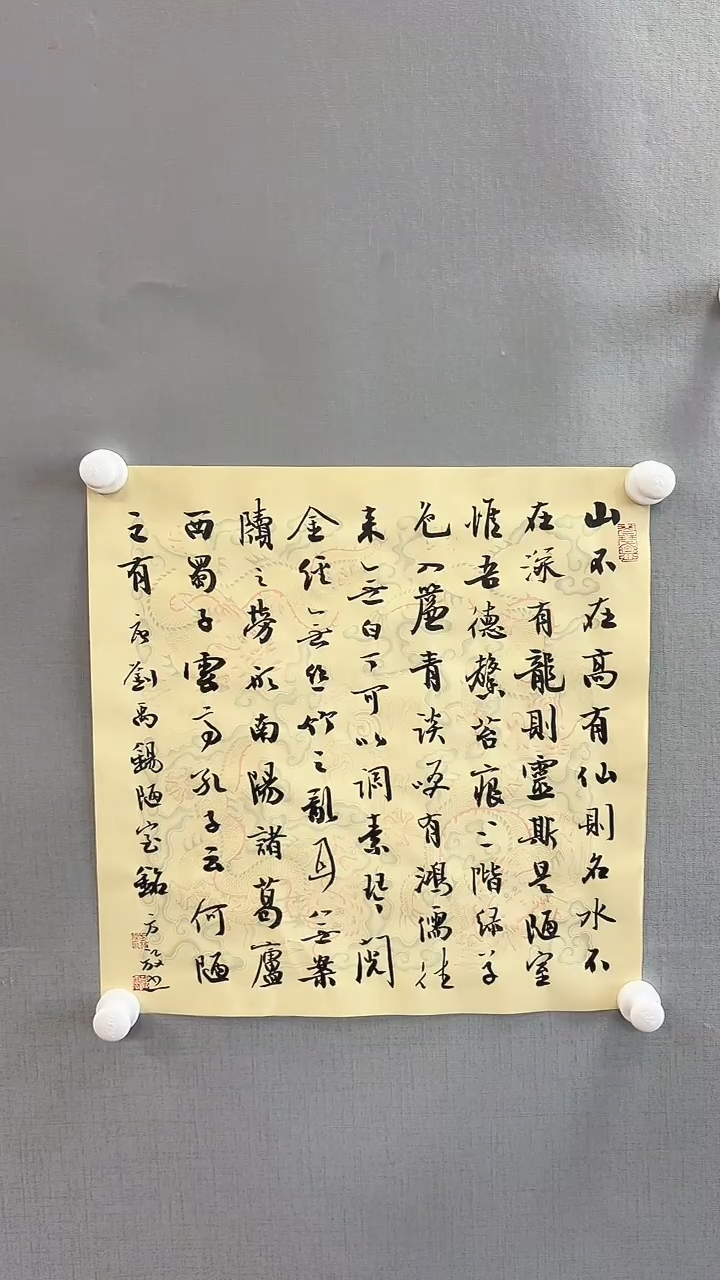 山不在高有仙則名水不
在深有龍則靈斯是陋室
惟吾德馨苔痕上階緑草
色入簾青談咲有鴻儒往
来無白丁可以調素琴閲
金經無絲竹之亂耳無案
牘之勞形南陽諸葛廬
西蜀子雲亭孔子云何陋
之有 唐劉禹錫陋室銘